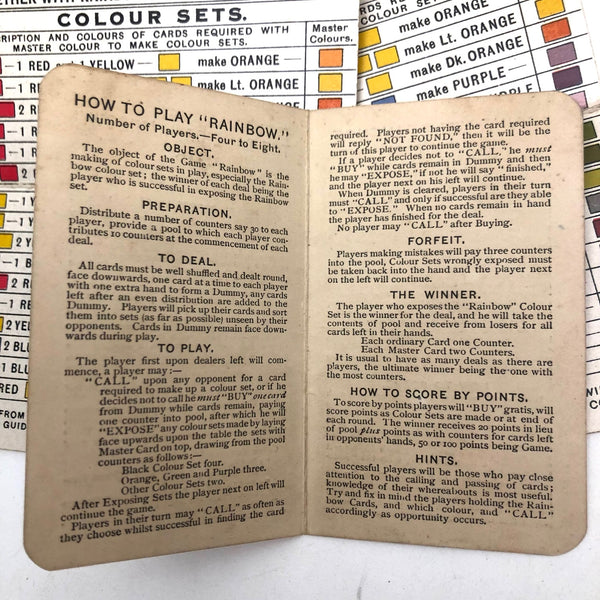 COLOUR SETS.
DESCRIPTION AND COLOURS OF CARDS REQUIRED WITH
MASTER COLOUR TO MAKE COLOUR SETS.
Master
Colours.
1 RED and 1 YELLOW
make ORANGE
make Lt. ORANGE
make ORANGE
make Lt. ORANGE
make Dk. ORANGE
make PURPLE
PURPLE
HOW TO PLAY "RAINBOW."
Number of Players.—Four to Eight.
OBJECT.
The object of the Game "Rainbow" is the
making of colour sets in play, especially the Rain-
bow colour set; the winner of each deal being the
player who is successful in exposing the Rainbow
set.
PREPARATION.
Distribute a number of counters say 30 to each
player, provide a pool to which each player con-
tributes 10 counters at the commencement of each
deal.
TO DEAL.
All cards must be well shuffled and dealt round,
face downwards, one card at a time to each player
with one extra hand to form a Dummy, any cards
left after an even distribution are added to the
Dummy. Players will pick up their cards and sort
them into sets (as far as possible) unseen by their
opponents. Cards in Dummy remain face down-
wards during play.
TO PLAY.
The player first upon dealers left will com-
mence, a player may :—
"CALL" upon any opponent for a card
required to make up a colour set, or if he
decides not to call he must "BUY" one card
from Dummy while cards remain, paying
one counter into pool, after which he will
"EXPOSE" any colour sets made by laying
face upwards upon the table the sets with
Master Card on top, drawing from the pool
counters as follows :—
Black Colour Set four.
Orange, Green and Purple three.
Other Colour Sets two.
After Exposing Sets the player next on left will
continue the game.
Players in their turn may "CALL" as often as
they choose whilst successful in finding the card
required. Players not having the card required
will reply "NOT FOUND," then it will be the
turn of this player to continue the game.
If a player decides not to "CALL," he must
"BUY" while cards remain in Dummy and then
he may "EXPOSE," if not he will say "finished,"
and the player next on his left will continue.
When Dummy is cleared, players in their turn
must "CALL" and only if successful are they able
to "EXPOSE." When no cards remain in hand
the player has finished for the deal.
No player may "CALL" after Buying.
FORFEIT.
Players making mistakes will pay three counters
into the pool, Colour Sets wrongly exposed must
be taken back into the hand and the player next
on the left will continue.
THE WINNER.
The player who exposes the "Rainbow" Colour
Set is the winner for the deal, and he will take the
contents of pool and receive from losers for all
cards left in their hands.
Each ordinary Card one Counter.
Each Master Card two Counters.
It is usual to have as many deals as there are
players, the ultimate winner being the one with
the most counters.
HOW TO SCORE BY POINTS.
To score by points players will "BUY" gratis, will
score points as Colour Sets are made or at end of
each round. The winner receives 20 points in lieu
of pool plus points as with counters for cards left
in opponents' hands, 50 or 100 points being Game.
HINTS.
Successful players will be those who pay close
attention to the calling and passing of cards;
knowledge of their whereabouts is most useful.
Try and fix in mind the players holding the Rain-
bow Cards, and which colour, and "CALL"
accordingly as opportunity occurs.